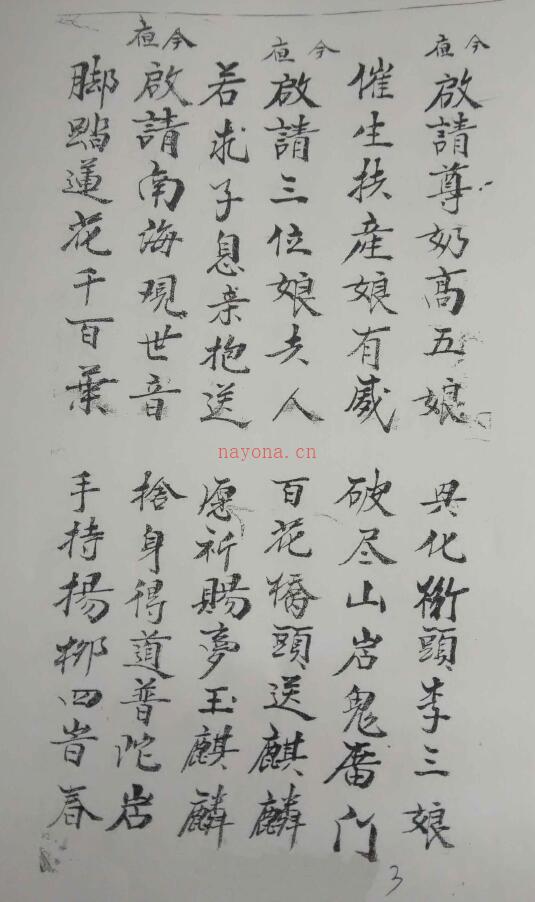 今夜
啟請尊奶高五娘 興化街頭李三娘
催生扶產娘有威 破尽山岩鬼厝门
今夜
啟請三位娘夫人 百花橋頭送麒麟
若求子息亲抱送 愿祈賜夢玉麒麟
今夜
啟請南海观世音 捨身得道普陀岩
脚踏蓮花千百葉 手持揚柳四旹春
nayona.cn
3